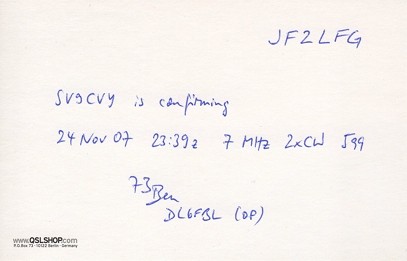 JF2LFG
SV9CVY is confirming
24 Nov 07 23:39z 7 MHz 2xCW 599
73 Ben
DL6FBL (OP)
www.QSLSHOP.com
P.O.Box 73 - 10122 Berlin - Germany